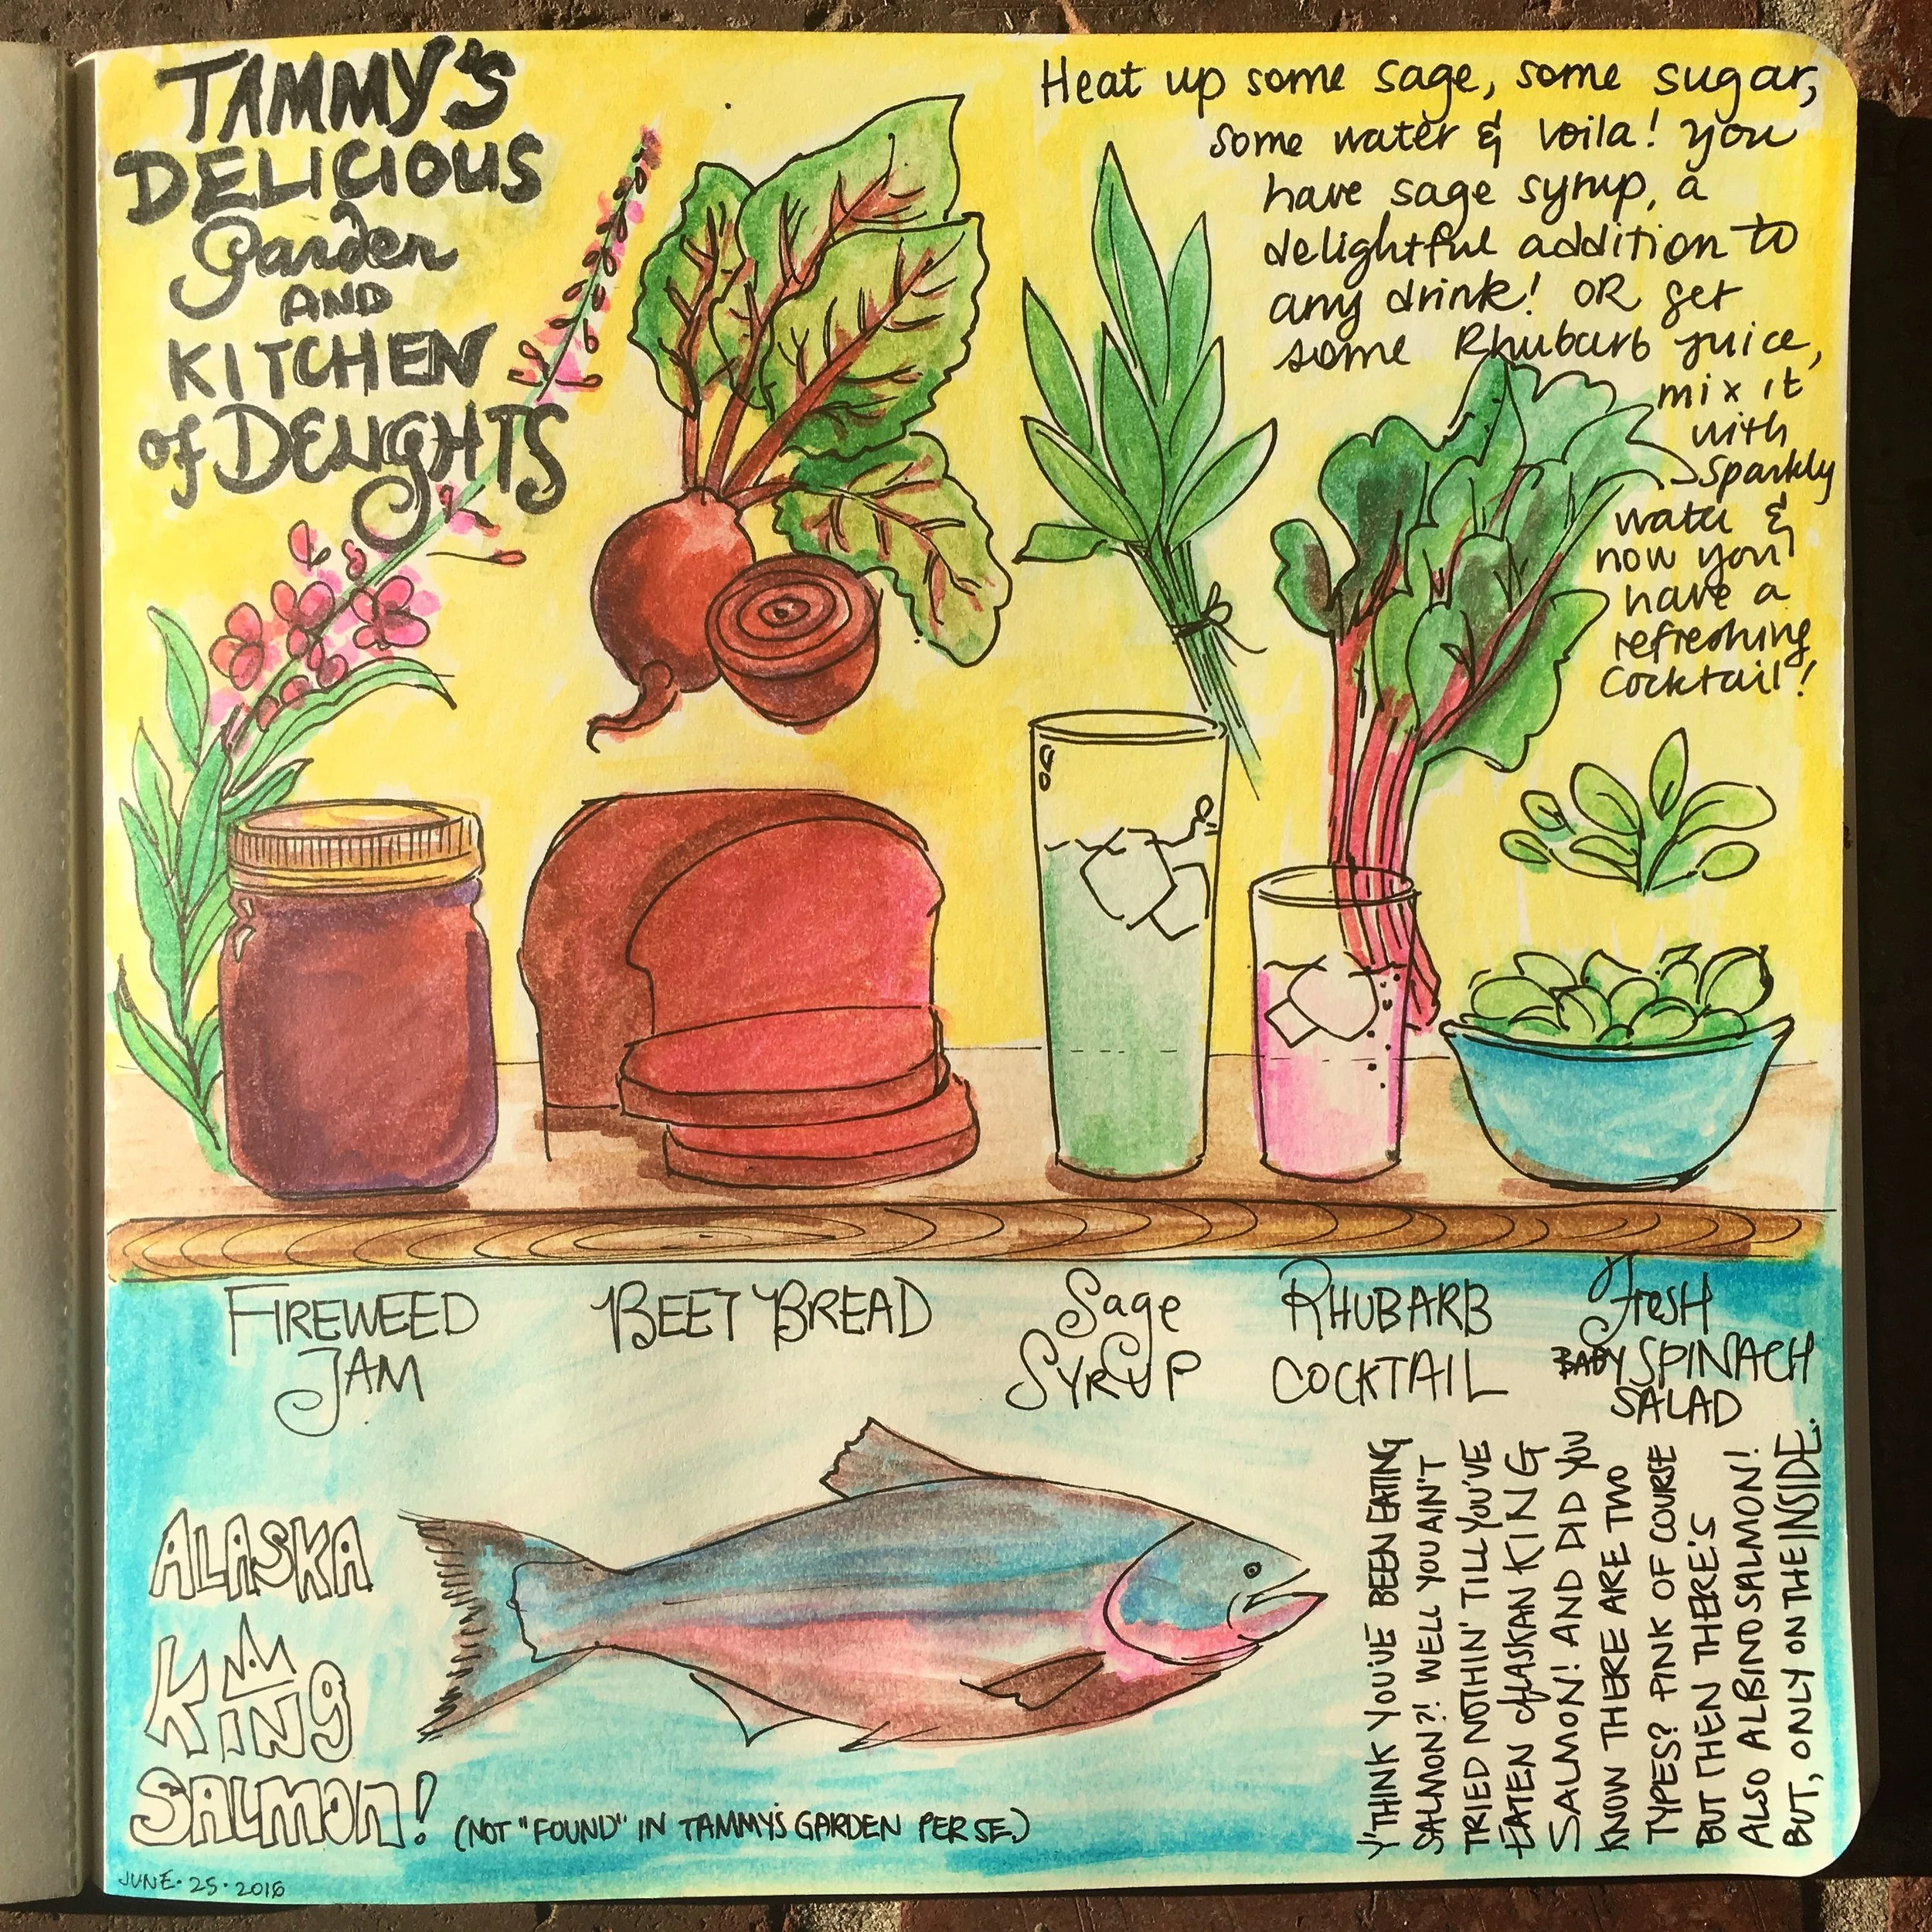 TAMMY'S
DELICIOUS
garden
AND
KITCHEN
of DELIGHTS
Heat up some sage, some sugar,
some water & voila! you
have sage syrup, a
delightful addition to
any drink! OR get
some Rhubarb juice,
mix it
with
sparkly
water &
now you
have a
refreshing
cocktail!
FIREWEED
JAM
BEET BREAD
Sage
SYRUP
RHUBARB
COCKTAIL
fresH
BABY SPINACH
SALAD
ALASKA
KING
SALMON!
(NOT "FOUND" IN TAMMY'S GARDEN PER SE.)
Y'THINK YOU'VE BEEN EATING
SALMON?! WELL YOU AIN'T
TRIED NOTHIN' TILL YOU'VE
EATEN ALASKAN KING
SALMON! AND DID YOU
KNOW THERE ARE TWO
TYPES? PINK OF COURSE
BUT THEN THERE'S
ALSO ALBINO SALMON!
BUT, ONLY ON THE INSIDE.
JUNE·25·2016